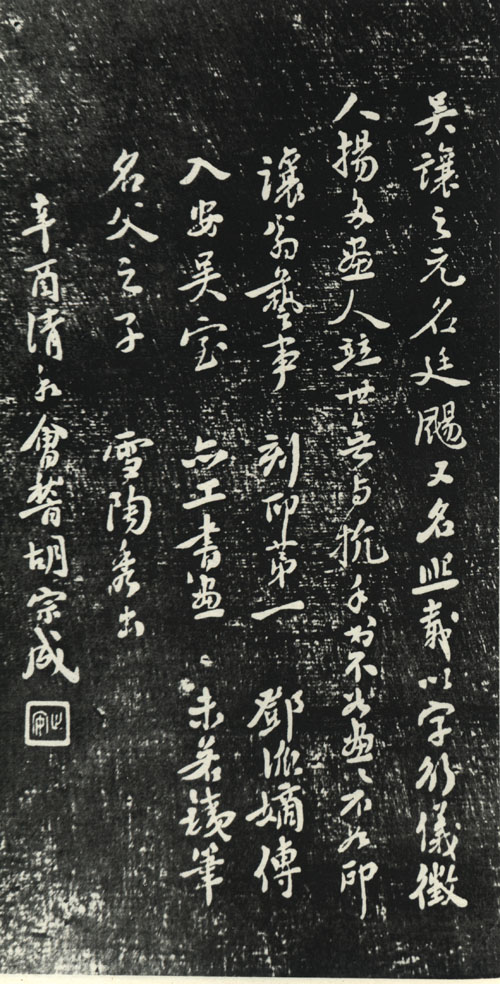 吳讓之元名廷颺又名熙載以字行儀徵
人揚多畫人竝世無与抗手書不如畫〻不如印
讓翁藝事 刻印第一 鄧派嫡傳
入安吳室 亦工書畫 未若銕筆
名父之子 雪陶秀出
辛酉清和會稽胡宗成